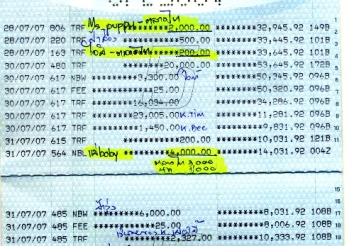 28/07/07 806 TRF Ms puppy *****2,000.00 ******32,945.92 149B
28/07/07 220 TRF *******500.00 ******33,445.92 101B
28/07/07 163 TRF *******200.00 ******33,645.92 101B
30/07/07 480 TRF ****20,000.00 ******53,645.92 172B
30/07/07 617 NBW *****3,300.00 ******50,345.92 096B
30/07/07 617 FEE ********25.00 ******50,320.92 096B
30/07/07 617 TRF ****16,034.00 ******34,286.92 096B
30/07/07 617 TRF ****23,005.00 K.Tim ******11,281.92 096B
30/07/07 617 TRF *****1,450.00 K.Bee *******9,831.92 096B
31/07/07 615 TRF *******200 ******10,031.92 121B
31/07/07 564 NBL baby *****4,000.00 ******14,031.92 004Z
3000
1,000
15
16
31/07/07 485 NBW *****6,000.00 *******8,031.92 108B 17
31/07/07 485 FEE ********25.00 *******8,006.92 108B 18
31/07/07 485 TRF *****2,327.00 ******10,333.92 108B 19